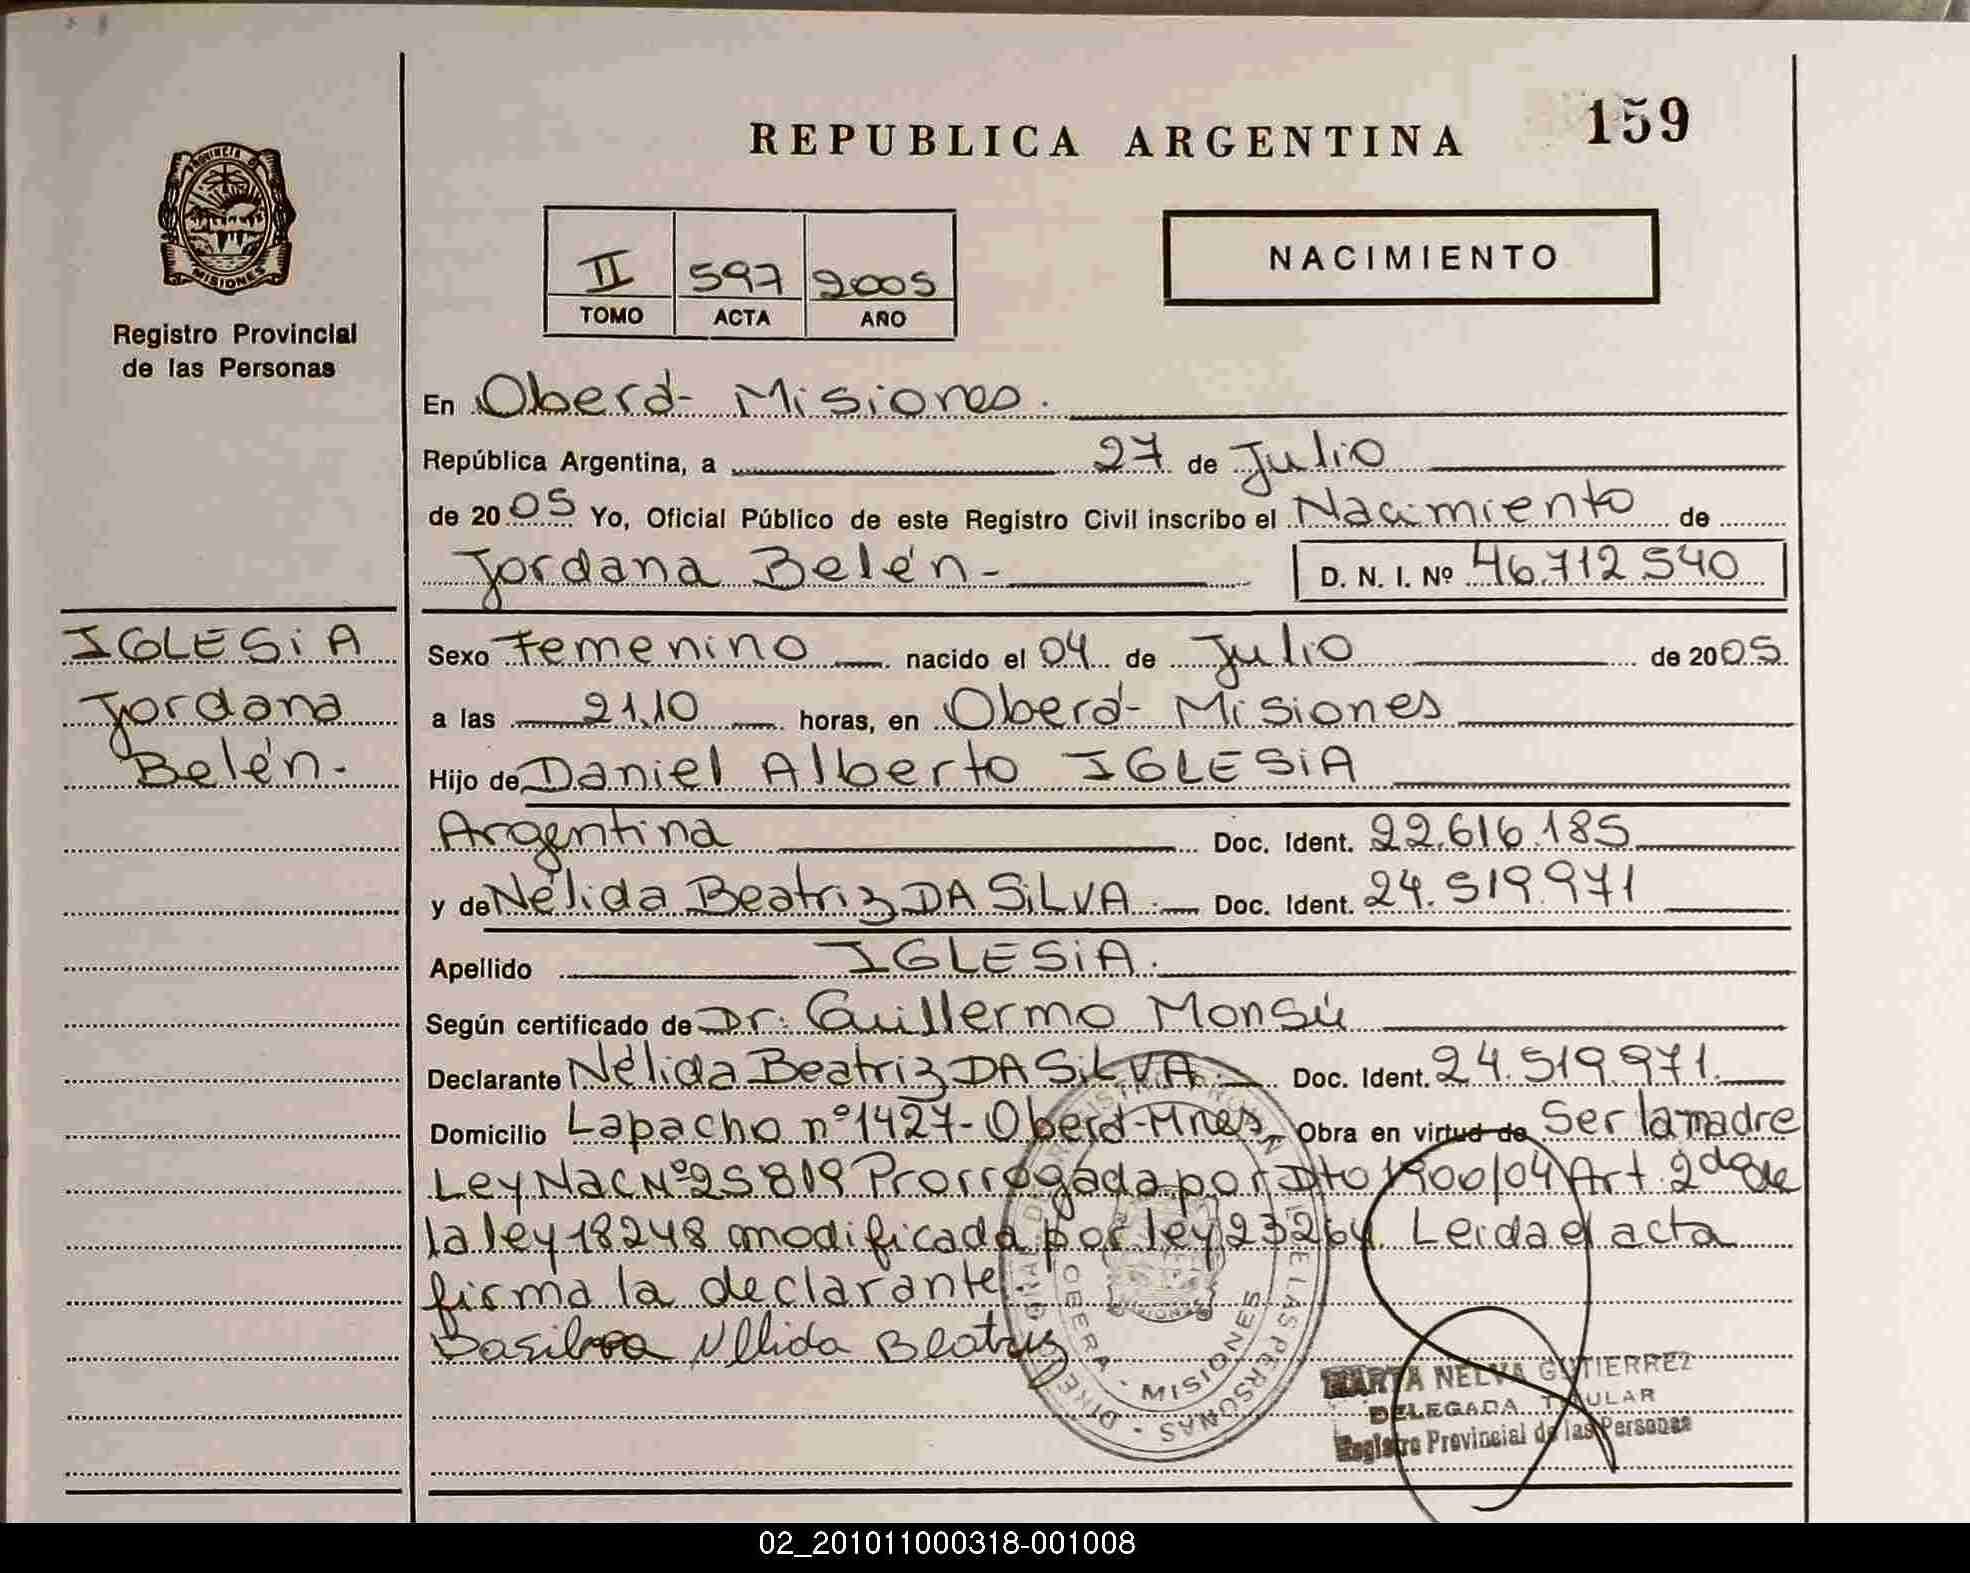 REPUBLICA ARGENTINA 159
PROVINCIA DE
MISIONES
Registro Provincial
de las Personas
II 597 2005
TOMO ACTA AÑO
NACIMIENTO
En Oberá- Misiones.
República Argentina, a 27 de Julio
de 2005 Yo, Oficial Público de este Registro Civil inscribo el Nacimiento de
Jordana Belén- D. N. I. Nº 46.712.540
IGLESiA
Jordana
Belén.-
Sexo Femenino nacido el 04 de Julio de 2005.
a las 21,10 horas, en Oberá- Misiones
Hijo de Daniel Alberto IGLESiA
Argentina Doc. Ident. 22.616.185
y de Nélida Beatriz DA SiLVA.- Doc. Ident. 24.519.971
Apellido IGLESiA.
Según certificado de Dr. Guillermo Monsú
Declarante Nélida Beatriz DA SiLVA.- Doc. Ident. 24.519.971.
Domicilio Lapacho nº1427- Oberá-Mnes, Obra en virtud de Ser la madre
Ley Nac Nº25819 Prorrogada por Dto 1900/04 Art. 2do de
la ley 18248 modificada por ley 23264. Leida el acta
firma la declarante.
Nélida Beatriz
OBERA - MISIONES
DE LAS PERSONAS
MARTA NELVA GUTIERREZ
DELEGADA TITULAR
Registro Provincial de las Personas
02_201011000318-001008